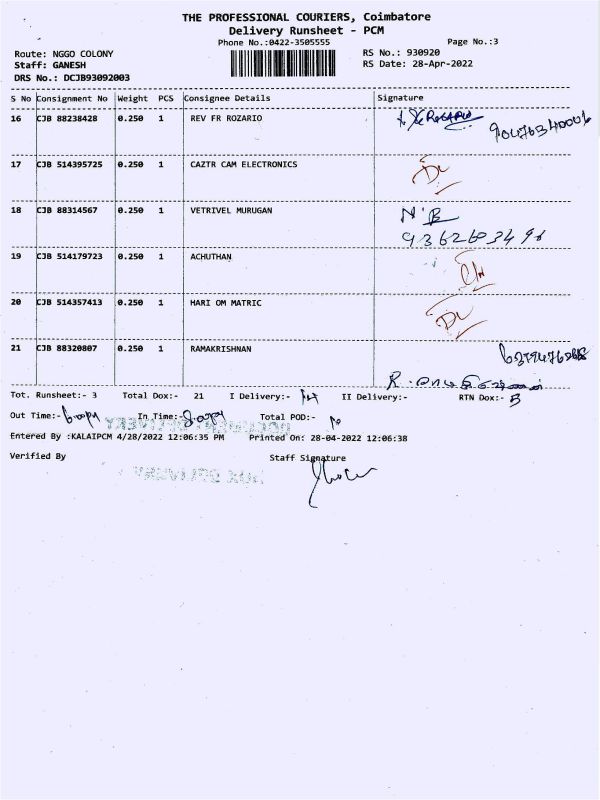 THE PROFESSIONAL COURIERS, Coimbatore
Delivery Runsheet - PCM
Phone No.:0422-3505555 Page No.:3
Route: NGGO COLONY RS No.: 930920
Staff: GANESH RS Date: 28-Apr-2022
DRS No.: DCJB93092003
S No Consignment No Weight PCS Consignee Details Signature
16 CJB 88238428 0.250 1 REV FR ROZARIO
17 CJB 514395725 0.250 1 CAZTR CAM ELECTRONICS DL
18 CJB 88314567 0.250 1 VETRIVEL MURUGAN
19 CJB 514179723 0.250 1 ACHUTHAN
20 CJB 514357413 0.250 1 HARI OM MATRIC DL
21 CJB 88320807 0.250 1 RAMAKRISHNAN
Tot. Runsheet:- 3 Total Dox:- 21 I Delivery:- II Delivery:- RTN Dox:-
Out Time:- In Time:- Total POD:-
Entered By :KALAIPCM 4/28/2022 12:06:35 PM Printed On: 28-04-2022 12:06:38
Verified By Staff Signature